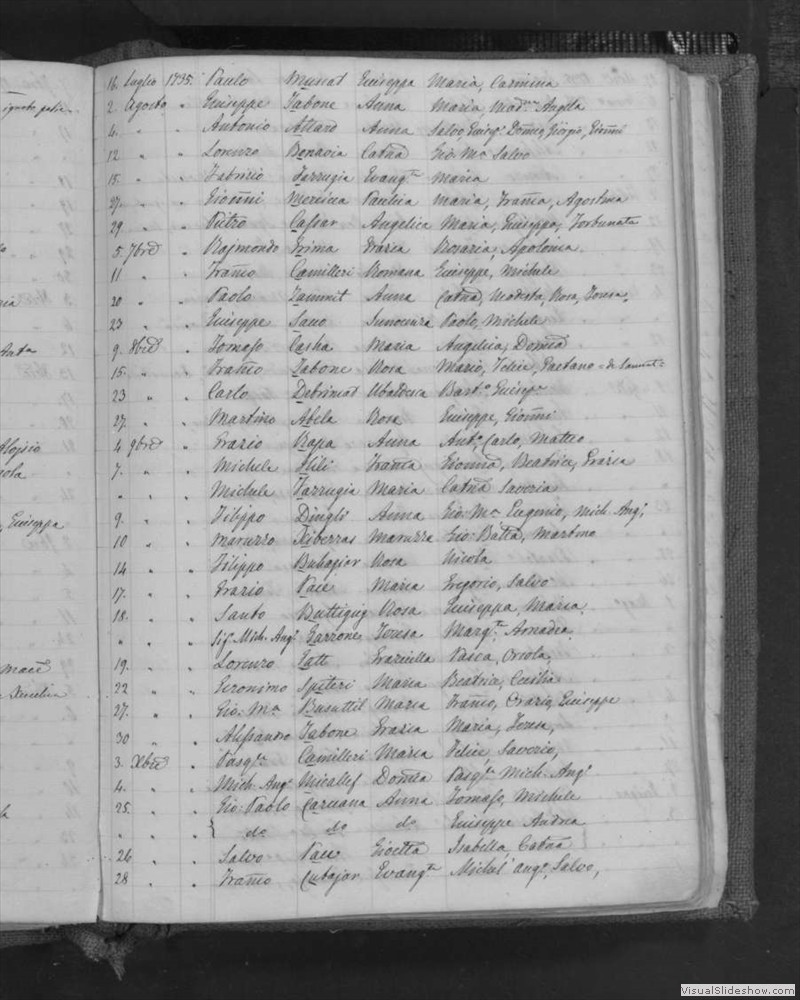 16. Luglio 1735. Paulo Munat Giuseppa Maria, Carmina
2. Agosto " Giuseppe Zabone Anna Maria, Mad.na Angela
4. " " Antonio Attard Anna Salvo, Giusep. Dom.co Giorgio, Gioñni
12 " " Lorenzo Bonavia Catña Gio: M.a Salvo
15. " " Fabrizio Farrugia Evang.ta Maria
27. " " Gioñni Mercieca Paulica Maria, Frañca, Agostina
29. " " Pietro Cassar Angelica Maria, Giuseppa, Fortunata
5. 7bre " Rajmondo Grima Grazia Rosaria, Apolonia
11 " " Frañco Camilleri Romana Giuseppe, Michele
20 " " Paolo Zammit Anna Catña, Modesta, Rosa, Teresa,
23 " " Giuseppe Innocenza Paolo, Michele
9. 8bre " Tomaso Casha Maria Angelica, Domca
15. " " Frañco Zabone Rosa Mario, Felice, Gaetano
23 " " Carlo Debrincat Ubaldesca Bart.o Giusep.e
27. " " Martino Abela Rosa Giuseppe, Gioñni
4 9bre " Grazio Rapa Anna Ant.o Carlo, Matteo
7. " " Michele Hili Frañca Gioñna, Beatrice, Grazia
" " " Michele Farrugia Maria Catña Saveria
9. " " Filippo Dingli Anna Gio: M.a Eugenio, Mich. Ang.
10 " " Maruzzo Xiberras Maruzza Gio: Batta, Martino
14 " " Filippo Buhagiar Rosa Nicola
17. " " Grazio Pace Maria Gregorio, Salvo
18. " " Santo Buttigieg Rosa Giuseppa, Maria
" " " Sig. Mich. Ang. Garzone Teresa Marg.ta Amadea,
19. " " Lorenzo Gatt Graziulla Pasca, Oriola,
22 " " Geronimo Spiteri Maria Beatrice, Cecilia
27. " " Gio: M.a Busuttil Maria Frañco, Orazio, Giuseppe
30 " " Alessandro Zabone Grazia Maria, Teresa,
3. Xbre " Pasq.le Camilleri Maria Felice, Saverio,
4. " " Mich. Ang. Micallef Domca Pasq.le Mich. Ang.
25. " " Gio: Paolo Caruana Anna Tomaso, Michele
" " " { do do do Giuseppe Andrea
26 " " Salvo Pace Gioetta Isabella, Catña
28 " " Frañco Cubajor Evang.ta Michel' ang.o, Salvo,
ignoto patre
Giuseppa
VisualSlideshow.com